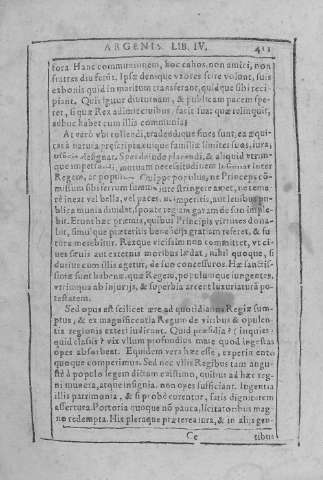 ARGENIS LIB. IV. 413
fora. Hanc communionem, hoc cahos, non amici, non
fratres diu ferūt. Ipsæ denique vxores scire volunt, quis
ea bonis quid in maritum transferant, quid que sibi reci-
piant. Quis igitur diuturnam, & publicam pacem spe-
ret, si quæ Rex adimit ciuibus, facit sua: quæ relinquit,
adhuc habet cum illis communia?
At verò vbi tollendi, tradendíque fines sunt, ea æqui-
tas à natura præscripta cuique familiæ limites suos, iura,
placendi, & aliquid vtrim-
que mutuam necessitudinem inter
Regem, ac populum Quippe populus, ne Princeps com-
missum sibi ferrum suum stringere amet, ne teme-
rè ineat vel bella, vel paces, imperitis, aut lenibus pu-
blica munia diuidat, spoate regiam gazam de suo imple-
bit. Erunt hæc præmia, quibus Principis virtutes dona-
bit, simulque præteritis beneficijs gratiam referet, & fu-
tura merebitur. Rex que vicissim non committet, vt ci-
ues seruis aut externis moribus lædat, nihil quoque, si
duriùs cum illis agetur, de suo concessuros. Hæ sanctis-
simæ sunt habenæ, quæ Regem, populumque iungentes,
vtrimque ab iniurijs, & superbia arcent luxuriatura po-
testatem.
Sed opus est scilicet ære ad quotidianum Regiæ sum-
ptus, & ex magnificentia Regum de viribus & opulen-
tia regionis exteri iudicant. Quid præsidia? (inquies)
quid classis? vix vllum profundius mare quod ingestas
opes absorbeat. Equidem vera hæc esse, experimento
quoque comperimus. Sed nec vllis Regibus tam angu-
stè à populo legem dictam existimo, quibus ad hæc reg-
ni munera, atque insignia, non opes sufficiant. Ingentia
illis patrimonia, & si probè curentur, satis dignitatem
assertura. Portoria quoque nō pauca, licitatoribus mag-
no redempta. His pleraque præterea iura, & in alias gen-
Cc tibus